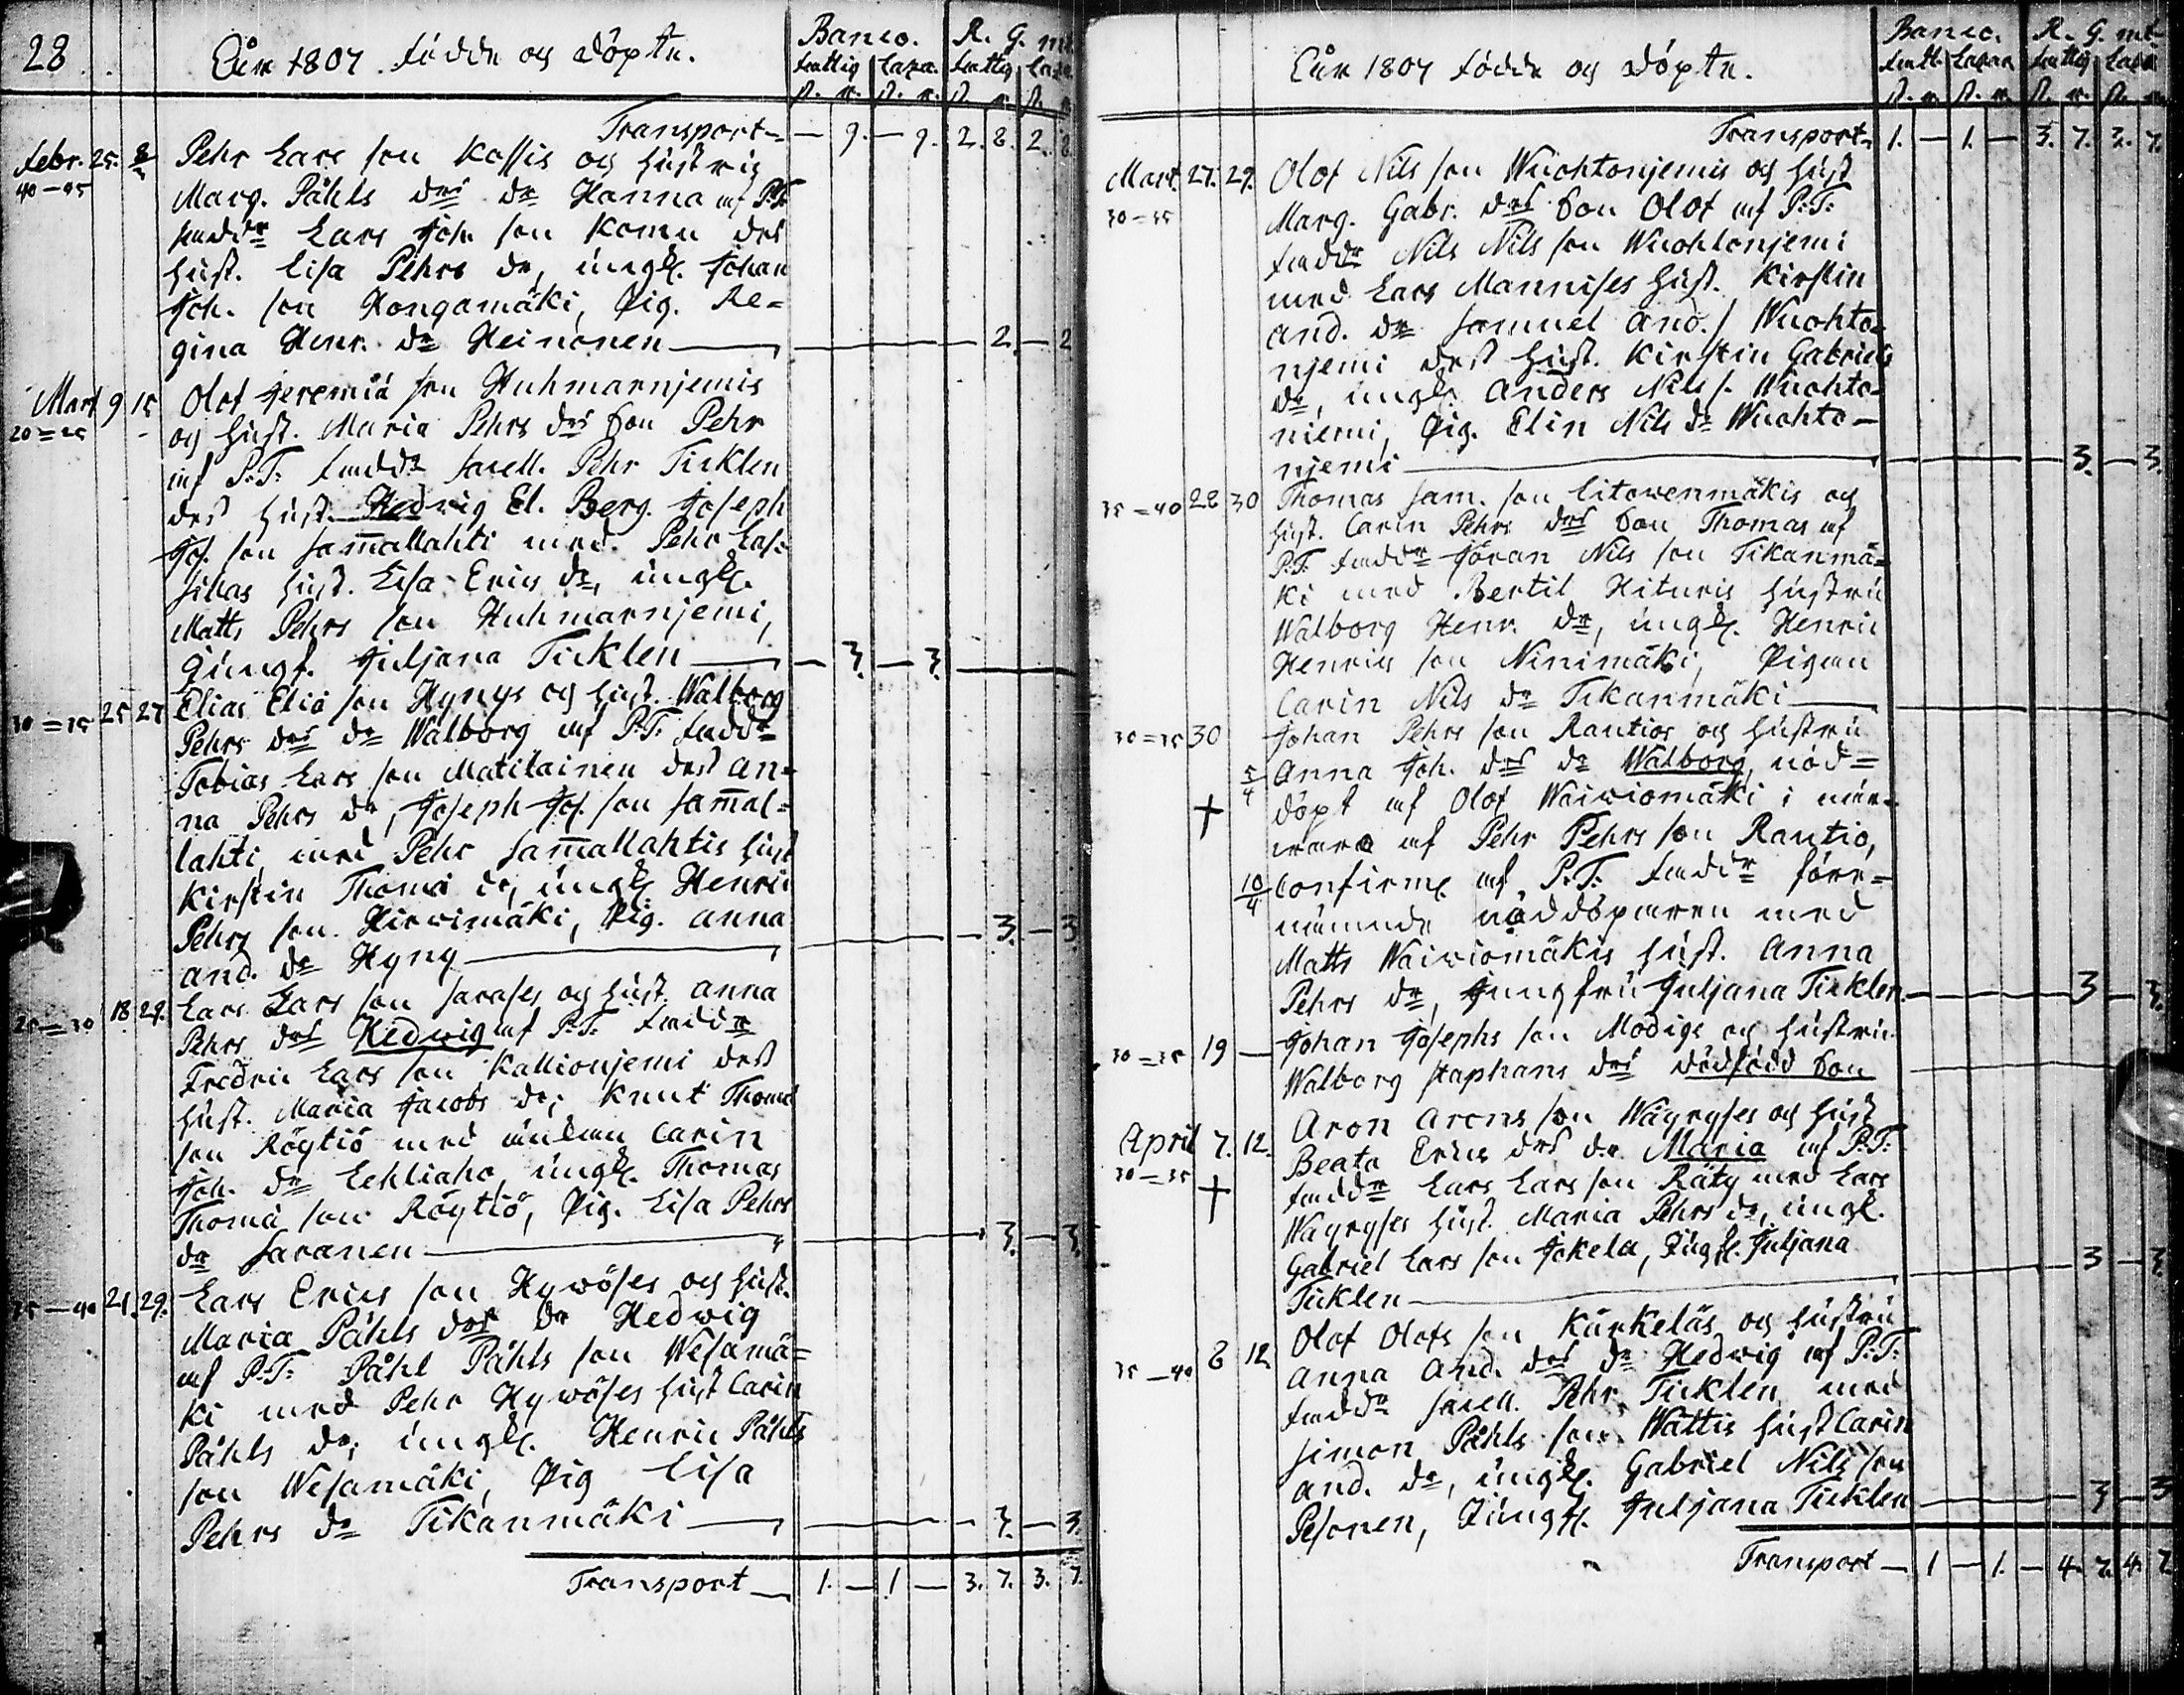 28
Åhr 1807 födde og döpte.
Banco. R. G. mt
fattig Laza. fattig Laza
s. r. s. r. s. r. s. r.
Transport — 9. — 9. 2. 8. 2. 8
Febr. 25. Pehr Lars son Kossis og hustru
40-45 Marg. Påhls drs dr Hanna af P.T.
fadd. Lars Joh. son Komu des
hust. Lisa Pehrs dr, ungk. Johan
Joh. son Hongamäki, Pig. Re=
gina Henr. dr Heinonen — 2. — 2
Mart 9 15 Olof Jeremiæ son Huhmarnjemis
20=25 og hust. Maria Pehrs drs Son Pehr
af P.T. fadd. Pehr Ticklen
des hust. Hedwig El. Berg. Joseph
Jos. son Sammallahti med Pehr Las=
silas hust. Lisa Erics dr, ungk.
Matts Pehrs son Huhmarnjemi,
Jungf. Juljana Ticklen — 3. — 3.
30=35 25 27 Elias Eliæ son Hynys og hust. Walborg
Pehrs drs dr Walborg af P.T. fadd.
Tobias Lars son Matilainen des an=
na Pehrs dr, Joseph Jos. son Sammal=
lahti, med Pehr Sammallahtis hust
Kirstin Thomæ dr, ungk. Henric
Pehrs son Hirwimäki, Pig. Anna
And. dr Hyny — 3. — 3.
25=30 18 29. Lars Lars son Sarases og hust. Anna
Pehrs drs Hedwig af P.T. fadd.
Fredric Lars son Kallionjemi des
hust. Maria Jacobs dr, Knut Thomæ
son Röytiö med enkan Carin
Joh. dr Lehtiaho, ungk. Thomas
Thomæ son Röytiö, Pig. Lisa Pehrs
dr Saranen — 3. — 3.
35-40 21. 29. Lars Erics son Hywöses og hust.
Maria Påhls drs dr Hedwig
af P.T. Påhl Påhls son Wesamä=
ki med Pehr Hywöses hust Carin
Påhls dr, ungk. Henric Påhls
son Wesamäki, Pig Lisa
Pehrs dr Tikanmäki — 3. — 3.
Transport — 1. — 1 — 3. 7. 3. 7.
Åhr 1807 födde og döpte.
Banco. R. G. mt
fatt. Lazar fattig Laza
s. r. s. r. s. r. s. r.
Transport 1. — 1. — 3. 7. 3. 7.
Mart. 27. 29. Olof Nils son Wuohtonjemis og hust
30=35 Marg. Gabr. drs Son Olof af P.T.
fadd. Nils Nils son Wuohtonjemi
med Lars Mannises hust. Kirstin
And. dr Samuel And. s. Wuohto=
njemi des hust. Kirstin Gabriels
dr, ungk. Anders Nils s. Wuohto=
niemi, Pig. Elin Nils dr Wuohto-
njemi — 3. — 3.
35=40 28 30 Thomas Sam. son Litowenmäkis og
hust. Carin Pehrs drs Son Thomas af
P.T. fadd. Jöran Nils son Tikanmä=
ki med Bertil Hituris hustru
Walborg Henr. dr, ungk. Henric
Henrics son Ninimäki, Pigan
Carin Nils dr Tikanmäki —
30=35 30 Johan Pehrs son Rautios og hustru
5/4 Anna Joh. drs dr Walborg, nöd=
† döpt af Olof Waiwiomäki i när-
waro af Pehr Pehrs son Rautio,
10/4 Confirm. af P.T. fadd. före=
nämnde nöddöparen med
Matts Waiwiomäkis hust. Anna
Pehrs dr, Jungfru Juljana Ticklen — 3 — 3.
30=35 19 — Johan Josephs son Modigs og hustru
Walborg Staphans drs dödfödd Son
April 7. 12. Aron Arons son Wäyryses og hust
30=35 Beata Erics drs dr Maria af P.T.
† fadd. Lars Lars son Räty med Lars
Wäyryses hust. Maria Pehrs dr, ungk.
Gabriel Lars son Jokela, Jungf. Juljana
Ticklen — 3 — 3
35-40 8 12 Olof Olofs son Kurkelas og hustru
Anna And. drs dr Hedwig af P.T.
fadd. Pehr Ticklen med
Simon Påhls son Wattis hust Carin
And. dr, ungk. Gabriel Nils son
Pesonen, Jungf. Juljana Ticklen — 3 — 3
Transport — 1 — 1. — 4. 7. 4. 7